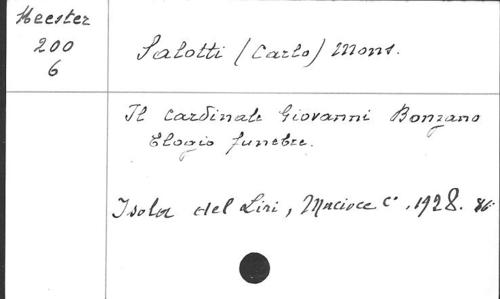 Meester
200
6
Salotti (Carlo) Mons.
Il Cardinale Giovanni Bonzano
Elogio funebre.
Isola del Liri, Macioce C°. 1928. 86